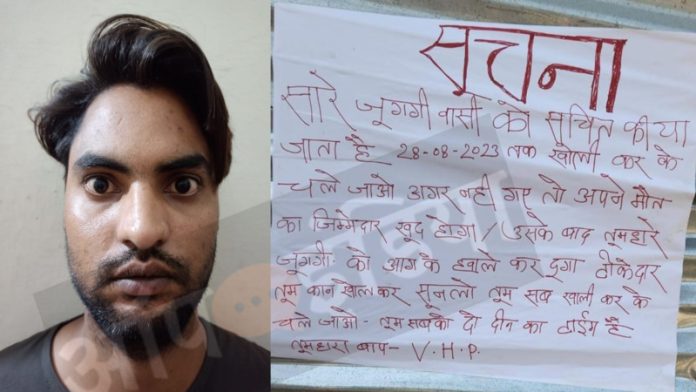 सूचना
सारे जूग्गी वासी को सुचित कीया
जाता है 28-08-2023 तक खाली कर के
चले जाओ अगर नही गए तो अपने मौत
का जिम्मेदार खूद होगा / उसके बाद तूमहारे
जूग्गी को आग के हवाले कर दूगा ठीकेदार
तूम कान खोल कर सूनलो तूम सब खाली कर के
चले जाओ - तूम सबको दो दीन का टाईम है
तूमहारा बाप - V.H.P.